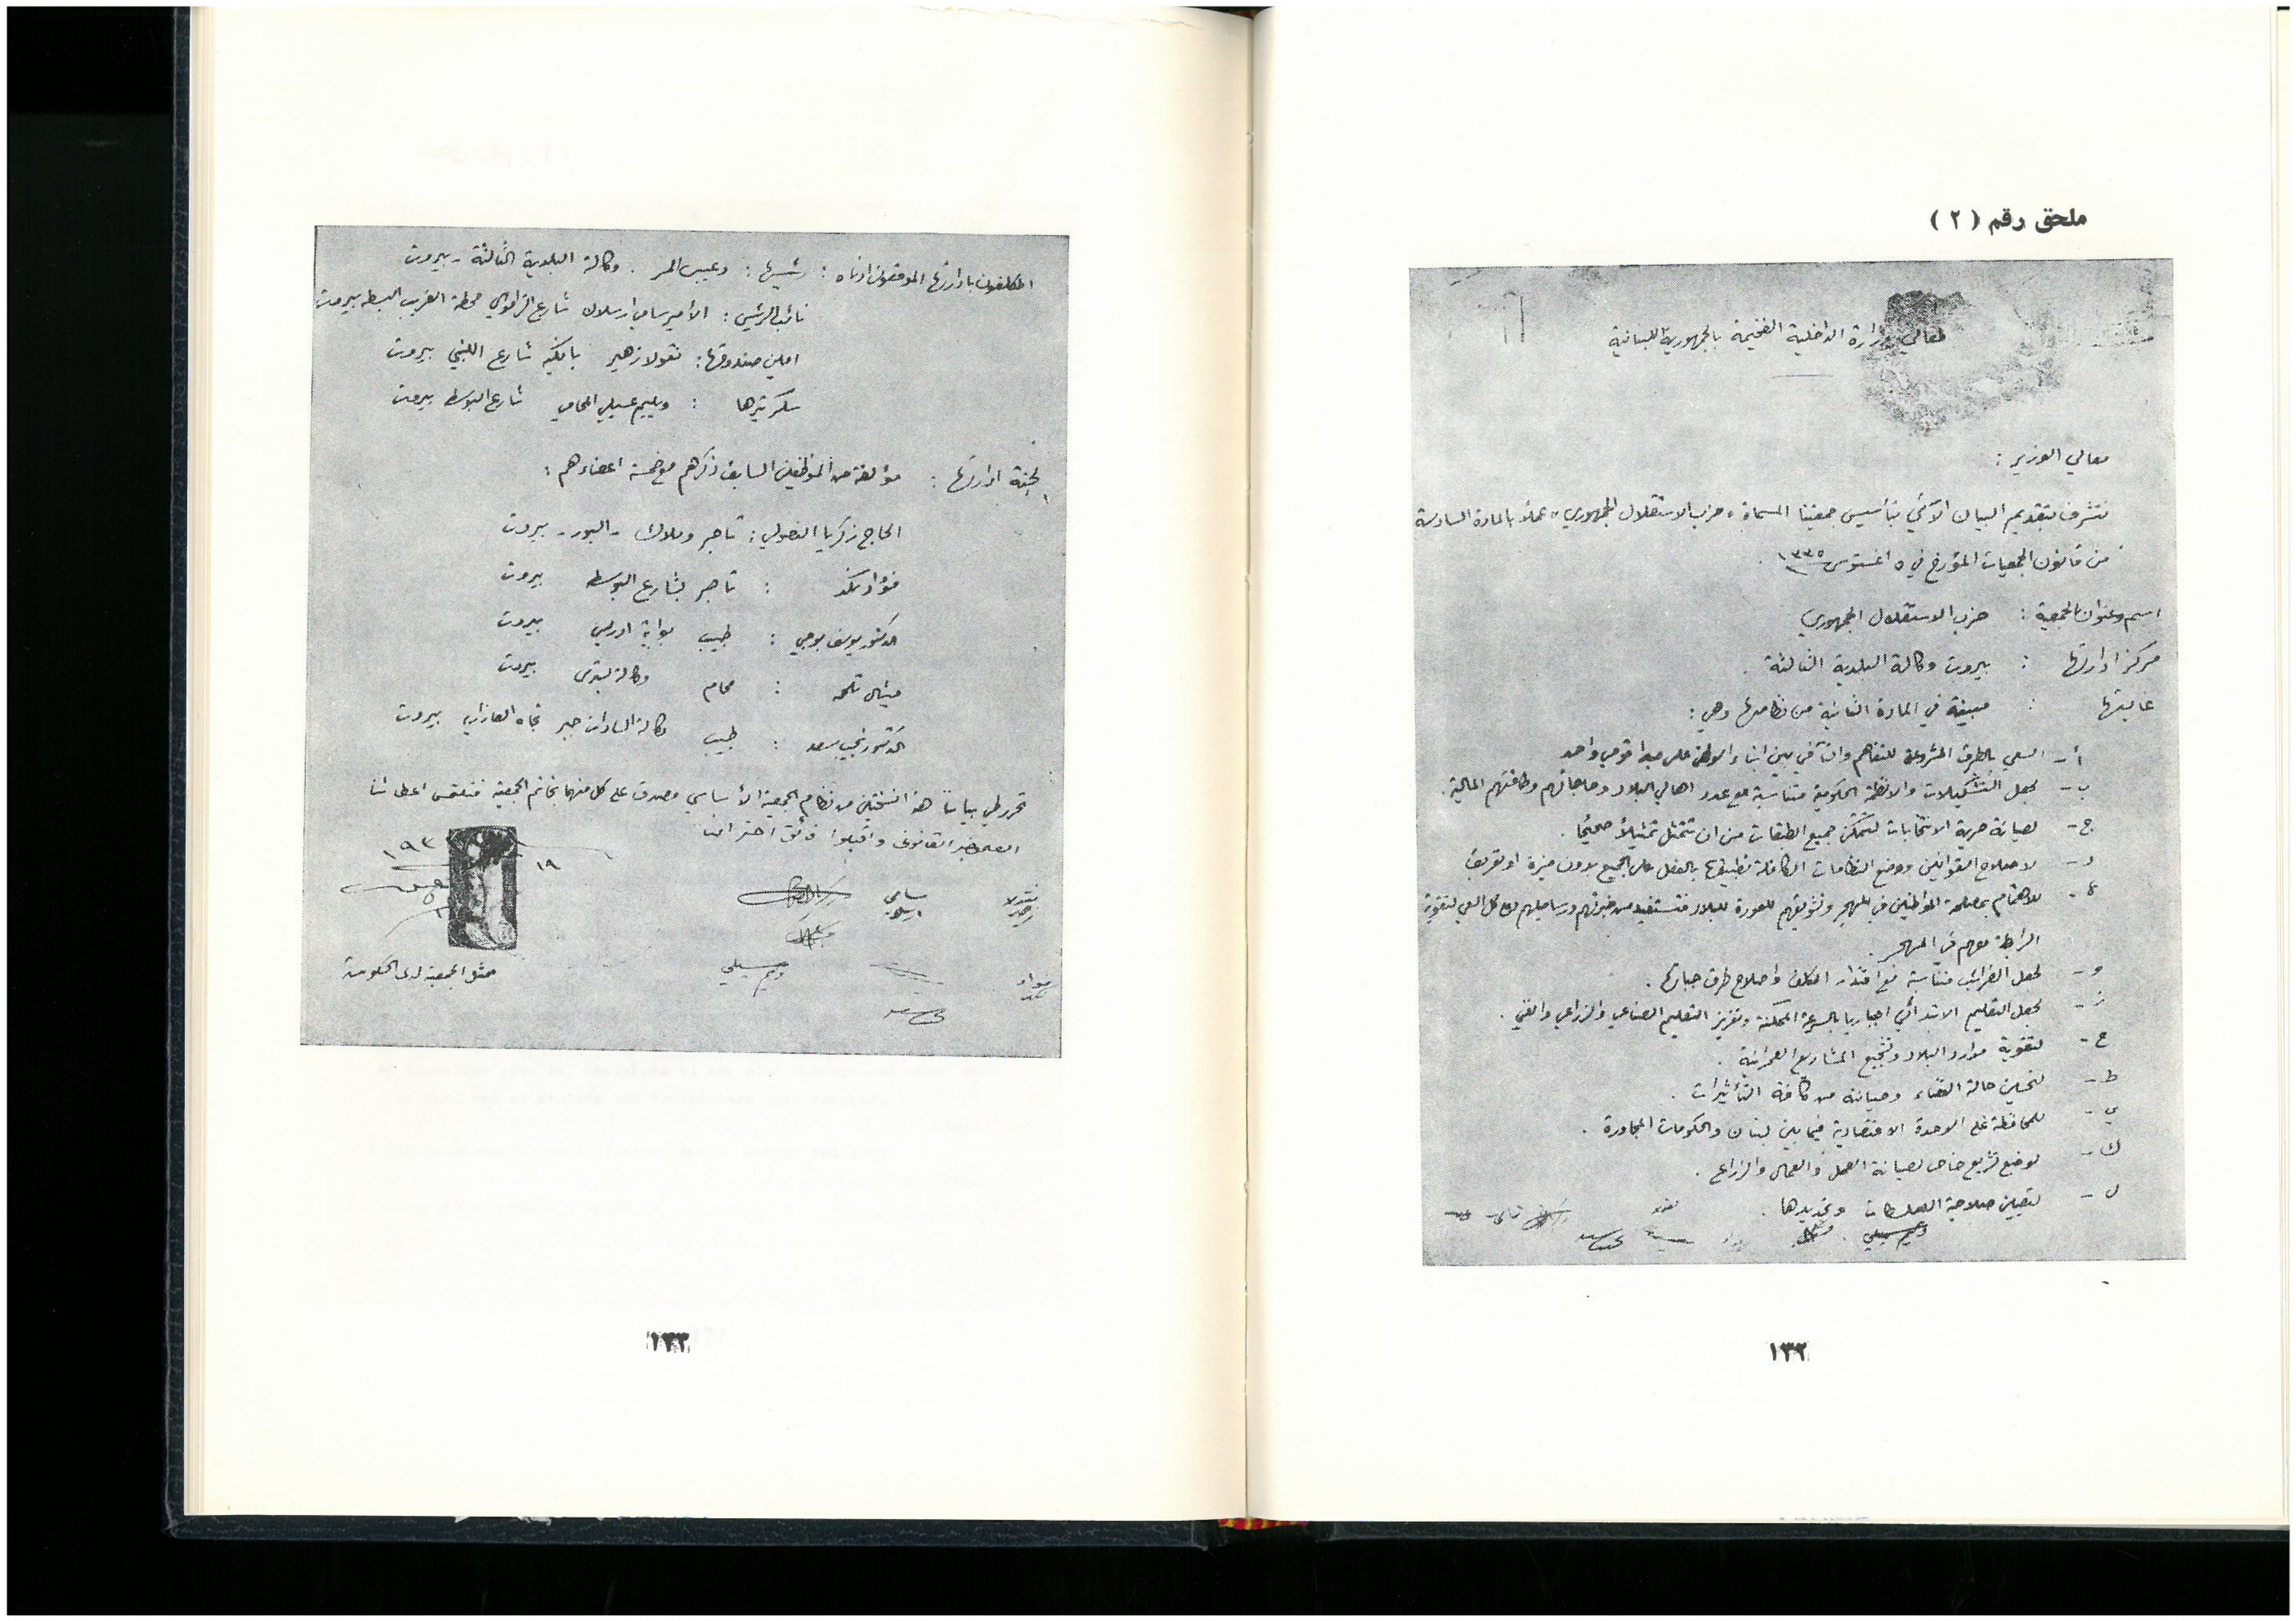 ملحق رقم ( ٢ )
لمعالي وزارة الداخلية الفخيمة بالجمهورية اللبنانية
معالي الوزير :
نتشرف بتقديم البيان الآتي بتأسيس جمعيتنا المسماة « حزب الاستقلال الجمهوري » عملاً بالمادة السادسة
من قانون الجمعيات المؤرخ في ٥ اغستوس ١٣٣٥ .
اسم وعنوان الجمعية : حزب الاستقلال الجمهوري
مركز ادارتها : بيروت وكالة البلدية الثالثة .
غايتها : مبينة في المادة الثانية من نظامها وهي :
أ - السعي بالطرق المشروعة للتفاهم والتآخي بين ابناء الوطن على مبدا قومي واحد
ب - لجعل التشكيلات والانظمة الحكومية متناسبة مع عدد اهالي البلاد وحاجاتهم وطاقتهم المالية .
ج - لصيانة حرية الانتخابات لتتمكن جميع الطبقات من ان تتمثل تمثيلاً صحيحًا .
د - لاصلاح القوانين ووضع النظامات الكافلة تطبيقها بالفعل على الجميع بدون ميزة او تفريق
ﻫ - للاهتمام بمصلحة المواطنين في المهجر وتشويقهم للعودة للبلاد فتستفيد من خبرتهم ورساميلهم مع كل السعي لتقوية
الرابطة معهم في المهجر .
و - لجعل الضرائب متناسبة مع اقتدار المكلف واصلاح طرق جبايتها .
ز - لجعل التعليم الابتدائي اجباريا بالسرعة الممكنة وتعزيز التعليم الصناعي والزراعي والفني .
ح - لتقوية موارد البلاد وتشجيع المشاريع العمرانية .
ط - لتحسين حالة القضاء وصيانته من كافة التأثيرات .
ي - للمحافظة على الوحدة الاقتصادية فيما بين لبنان والحكومات المجاورة .
ك - لوضع تشريع خاص لصيانة العمل والعمال والزراع .
ل - لتعيين صلاحية السلطات وتحديدها .
١٣٢
المكلفون بادارتها الموقعون ادناه : رئيسها : وكالة البلدية الثالثة - بيروت
نائب الرئيس : الأمير سامي ارسلان شارع محطة البسطه بيروت
امين صندوقها : نقولا زهير بانكيه شارع اللنبي بيروت
سكرتيرها : المحامي شارع البوسطه بيروت
لجنة ادارتها : مؤلفة من الموظفين السابق ذكرهم مع خمسة اعضاء هم :
الحاج زكريا النصولي : تاجر وملاك - البور - بيروت
فؤاد نكد : تاجر بشارع البوسطه بيروت
الدكتور يوسف : طبيب بوابة ادريس بيروت
ميشال تلحمه : محام وكالة بيروت
الدكتور نجيب سعد : طبيب وكالة السادات جبر تجاه العازارية بيروت
تحرر طي بياننا هذا النسختين من نظام الجمعية الأساسي مصدق على كل منهما بخاتم الجمعية فنلتمس اعطائنا
القانوني واقبلوا فائق احترامنا
١٩ ١٩٣
سامي
ارسلان
نقولا
زهير
فؤاد
نكد
ممثل الجمعية لدى الحكومة
١٣٣